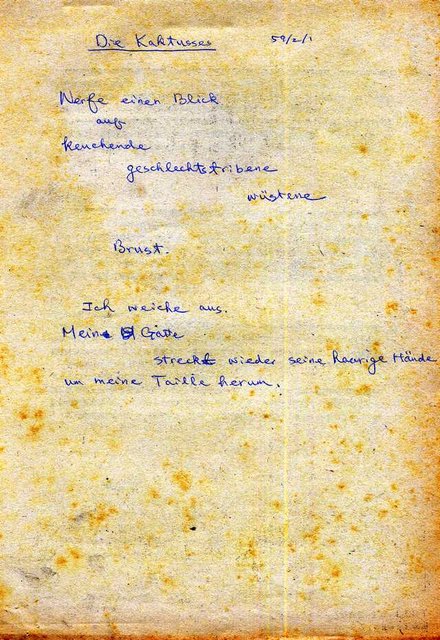 Die Kaktusses 59/2/1
Werfe einen Blick
auf
keuchende
geschlechtstribene
wüstene
Brust.
Ich weiche aus.
Mein Gatte
streckt wieder seine haarige Hände
um meine Taille herum.